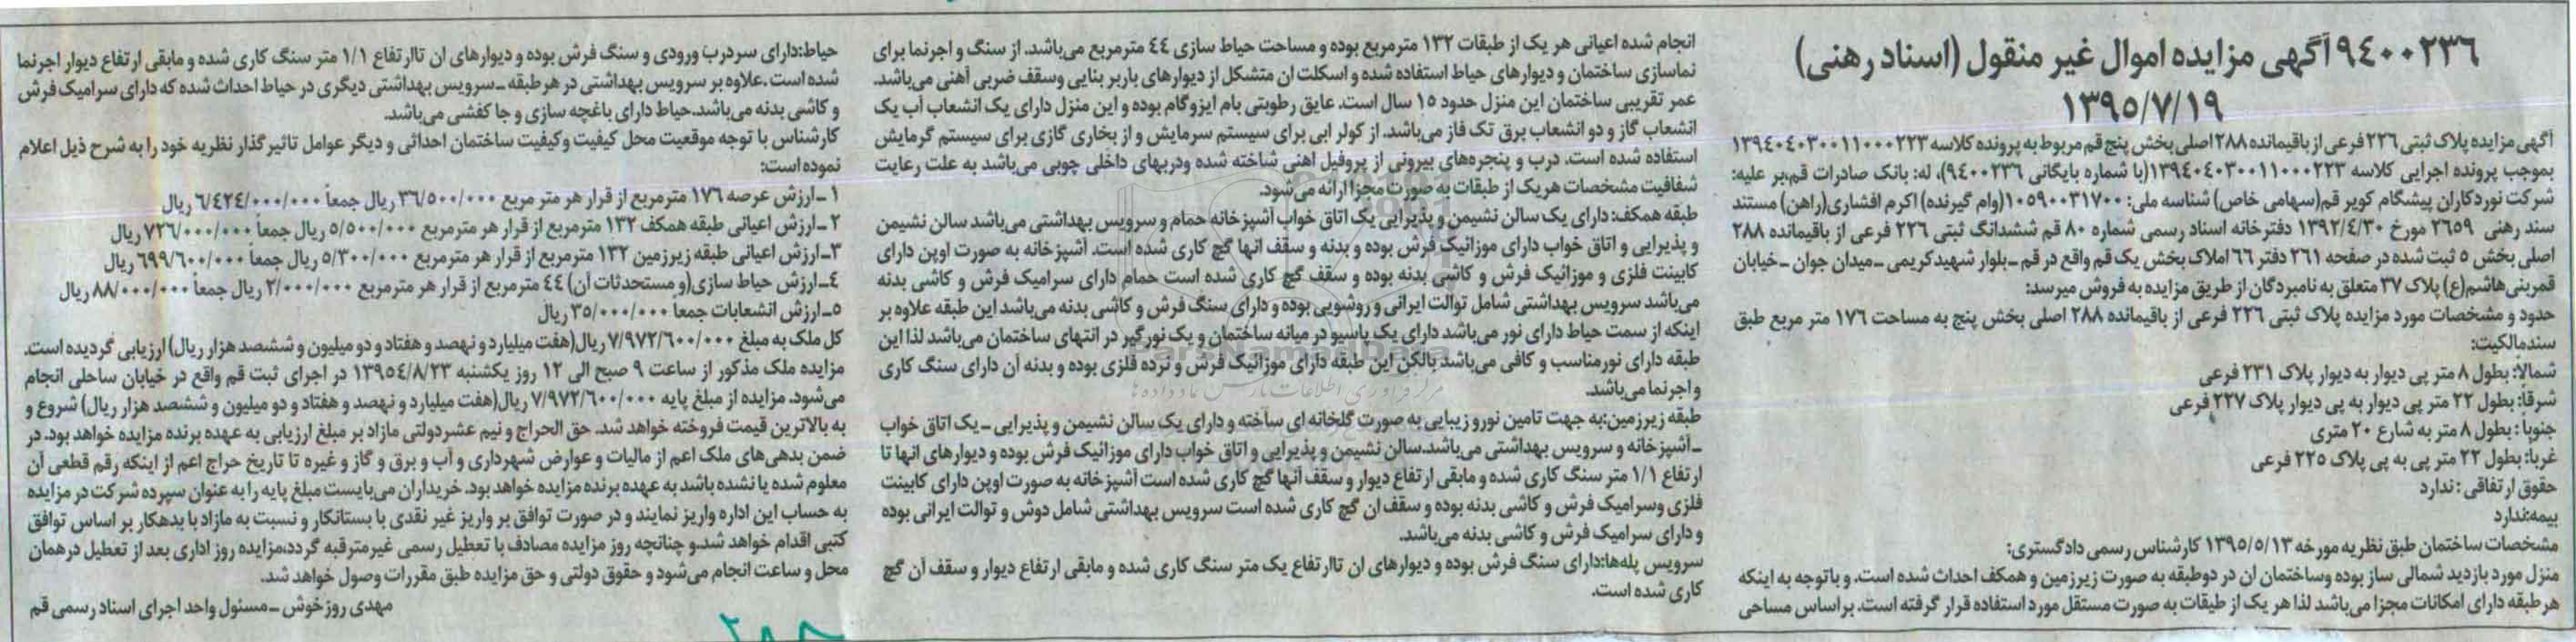 ۹۴۰۰۲۳۶ آگهی مزایده اموال غیر منقول (اسناد رهنی)
۱۳۹۵/۷/۱۹
آگهی مزایده پلاک ثبتی ۲۲۶ فرعی از باقیمانده ۲۸۸ اصلی بخش پنج قم مربوط به پرونده کلاسه ۱۳۹۴۰۴۰۳۰۰۱۱۰۰۰۲۲۳
بموجب پرونده اجرایی کلاسه ۱۳۹۴۰۴۰۳۰۰۱۱۰۰۰۲۲۳(با شماره بایگانی ۹۴۰۰۲۳۶)، له: بانک صادرات قم،بر علیه:
شرکت نوردکاران پیشگام کویر قم(سهامی خاص) شناسه ملی: ۱۰۵۹۰۰۳۱۷۰۰(وام گیرنده) اکرم افشاری(راهن) مستند
سند رهنی ۲۶۵۹ مورخ ۱۳۹۲/۴/۳۰ دفترخانه اسناد رسمی شماره ۸۰ قم ششدانگ ثبتی ۲۲۶ فرعی از باقیمانده ۲۸۸
اصلی بخش ۵ ثبت شده در صفحه ۲۶۱ دفتر ۶۶ املاک بخش یک قم واقع در قم ـ بلوار شهیدکریمی ـ میدان جوان ـ خیابان
قمربنی‌هاشم(ع) پلاک ۳۷ متعلق به نامبردگان از طریق مزایده به فروش میرسد:
حدود و مشخصات مورد مزایده پلاک ثبتی ۲۲۶ فرعی از باقیمانده ۲۸۸ اصلی بخش پنج به مساحت ۱۷۶ متر مربع طبق
سندمالکیت:
شمالاً: بطول ۸ متر پی دیوار به دیوار پلاک ۲۳۱ فرعی
شرقاً: بطول ۲۲ متر پی دیوار به پی دیوار پلاک ۲۲۷ فرعی
جنوباً : بطول ۸ متر به شارع ۲۰ متری
غرباً: بطول ۲۲ متر پی به پی پلاک ۲۲۵ فرعی
حقوق ارتفاقی : ندارد
بیمه:ندارد
مشخصات ساختمان طبق نظریه مورخه ۱۳۹۵/۵/۱۳ کارشناس رسمی دادگستری:
منزل مورد بازدید شمالی ساز بوده وساختمان ان در دوطبقه به صورت زیرزمین و همکف احداث شده است. و باتوجه به اینکه
هرطبقه دارای امکانات مجزا می‌باشد لذا هر یک از طبقات به صورت مستقل مورد استفاده قرار گرفته است. براساس مساحی
انجام شده اعیانی هر یک از طبقات ۱۳۲ مترمربع بوده و مساحت حیاط سازی ۴۴ مترمربع می‌باشد. از سنگ و اجرنما برای
نماسازی ساختمان و دیوارهای حیاط استفاده شده و اسکلت ان متشکل از دیوارهای باربر بنایی وسقف ضربی آهنی می‌باشد.
عمر تقریبی ساختمان این منزل حدود ۱۵ سال است. عایق رطوبتی بام ایزوگام بوده و این منزل دارای یک انشعاب آب یک
انشعاب گاز و دو انشعاب برق تک فاز می‌باشد. از کولر ابی برای سیستم سرمایش و از بخاری گازی برای سیستم گرمایش
استفاده شده است. درب و پنجره‌های بیرونی از پروفیل اهنی شاخته شده ودربهای داخلی چوبی می‌باشد به علت رعایت
شفافیت مشخصات هریک از طبقات به صورت مجزا ارائه می‌شود.
طبقه همکف: دارای یک سالن نشیمن و پذیرایی یک اتاق خواب آشپزخانه حمام و سرویس بهداشتی می‌باشد سالن نشیمن
و پذیرایی و اتاق خواب دارای موزائیک فرش بوده و بدنه و سقف انها گچ کاری شده است. آشپزخانه به صورت اوپن دارای
کابینت فلزی و موزائیک فرش و کاشی بدنه بوده و سقف گچ کاری شده است حمام دارای سرامیک فرش و کاشی بدنه
می‌باشد سرویس بهداشتی شامل توالت ایرانی و روشویی بوده و دارای سنگ فرش و کاشی بدنه می‌باشد این طبقه علاوه بر
اینکه از سمت حیاط دارای نور می‌باشد دارای یک پاسیو در میانه ساختمان و یک نورگیر در انتهای ساختمان می‌باشد لذا این
طبقه دارای نورمناسب و کافی می‌باشد بالکن این طبقه دارای موزائیک فرش و نرده فلزی بوده و بدنه آن دارای سنگ کاری
و اجرنما می‌باشد.
طبقه زیرزمین:به جهت تامین نورو زیبایی به صورت گلخانه ای ساخته و دارای یک سالن نشیمن و پذیرایی ـ یک اتاق خواب
ـ آشپزخانه و سرویس بهداشتی می‌باشد.سالن نشیمن و پذیرایی و اتاق خواب دارای موزائیک فرش بوده و دیوارهای انها تا
ارتفاع ۱/۱ متر سنگ کاری شده و مابقی ارتفاع دیوار و سقف آنها گچ کاری شده است آشپزخانه به صورت اوپن دارای کابینت
فلزی وسرامیک فرش و کاشی بدنه بوده و سقف ان گچ کاری شده است سرویس بهداشتی شامل دوش و توالت ایرانی بوده
و دارای سرامیک فرش و کاشی بدنه می‌باشد.
سرویس پله‌ها:دارای سنگ فرش بوده و دیوارهای ان تاارتفاع یک متر سنگ کاری شده و مابقی ارتفاع دیوار و سقف آن گچ
کاری شده است.
حیاط:دارای سردرب ورودی و سنگ فرش بوده و دیوارهای ان تاارتفاع ۱/۱ متر سنگ کاری شده و مابقی ارتفاع دیوار اجرنما
شده است .علاوه بر سرویس بهداشتی در هرطبقه ـ سرویس بهداشتی دیگری در حیاط احداث شده که دارای سرامیک فرش
و کاشی بدنه می‌باشد.حیاط دارای باغچه سازی و جا کفشی می‌باشد.
کارشناس با توجه موقعیت محل کیفیت وکیفیت ساختمان احداثی و دیگر عوامل تاثیرگذار نظریه خود را به شرح ذیل اعلام
نموده است:
۱ ـ ارزش عرصه ۱۷۶ مترمربع از قرار هر متر مربع ۳۶/۵۰۰/۰۰۰ ریال جمعاً ۶/۴۲۴/۰۰۰/۰۰۰ ریال
۲ ـ ارزش اعیانی طبقه همکف ۱۳۲ مترمربع از قرار هر مترمربع ۵/۵۰۰/۰۰۰ ریال جمعاً ۷۲۶/۰۰۰/۰۰۰ ریال
۳ـ ارزش اعیانی طبقه زیرزمین ۱۳۲ مترمربع از قرار هر مترمربع ۵/۳۰۰/۰۰۰ ریال جمعاً ۶۹۹/۶۰۰/۰۰۰ ریال
۴ـ ارزش حیاط سازی(و مستحدثات آن) ۴۴ مترمربع از قرار هر مترمربع ۲/۰۰۰/۰۰۰ ریال جمعاً ۸۸/۰۰۰/۰۰۰ ریال
۵ـ ارزش انشعابات جمعاً ۳۵/۰۰۰/۰۰۰ ریال
کل ملک به مبلغ ۷/۹۷۲/۶۰۰/۰۰۰ ریال(هفت میلیارد و نهصد و هفتاد و دو میلیون و ششصد هزار ریال) ارزیابی گردیده است.
مزایده ملک مذکور از ساعت ۹ صبح الی ۱۲ روز یکشنبه ۱۳۹۵۴/۸/۲۳ در اجرای ثبت قم واقع در خیابان ساحلی انجام
می‌شود. مزایده از مبلغ پایه ۷/۹۷۲/۶۰۰/۰۰۰ ریال(هفت میلیارد و نهصد و هفتاد و دو میلیون و ششصد هزار ریال) شروع و
به بالاترین قیمت فروخته خواهد شد. حق الحراج و نیم عشردولتی مازاد بر مبلغ ارزیابی به عهده برنده مزایده خواهد بود. در
ضمن بدهی‌های ملک اعم از مالیات و عوارض شهرداری و آب و برق و گاز و غیره تا تاریخ حراج اعم از اینکه رقم قطعی آن
معلوم شده یا نشده باشد به عهده برنده مزایده خواهد بود. خریداران می‌بایست مبلغ پایه را به عنوان سپرده شرکت در مزایده
به حساب این اداره واریز نمایند و در صورت توافق بر واریز غیر نقدی با بستانکار و نسبت به مازاد با بدهکار بر اساس توافق
کتبی اقدام خواهد شد.و چنانچه روز مزایده مصادف با تعطیل رسمی غیرمترقبه گردد،مزایده روز اداری بعد از تعطیل درهمان
محل و ساعت انجام می‌شود و حقوق دولتی و حق مزایده طبق مقررات وصول خواهد شد.
مهدی روزخوش ـ مسئول واحد اجرای اسناد رسمی قم